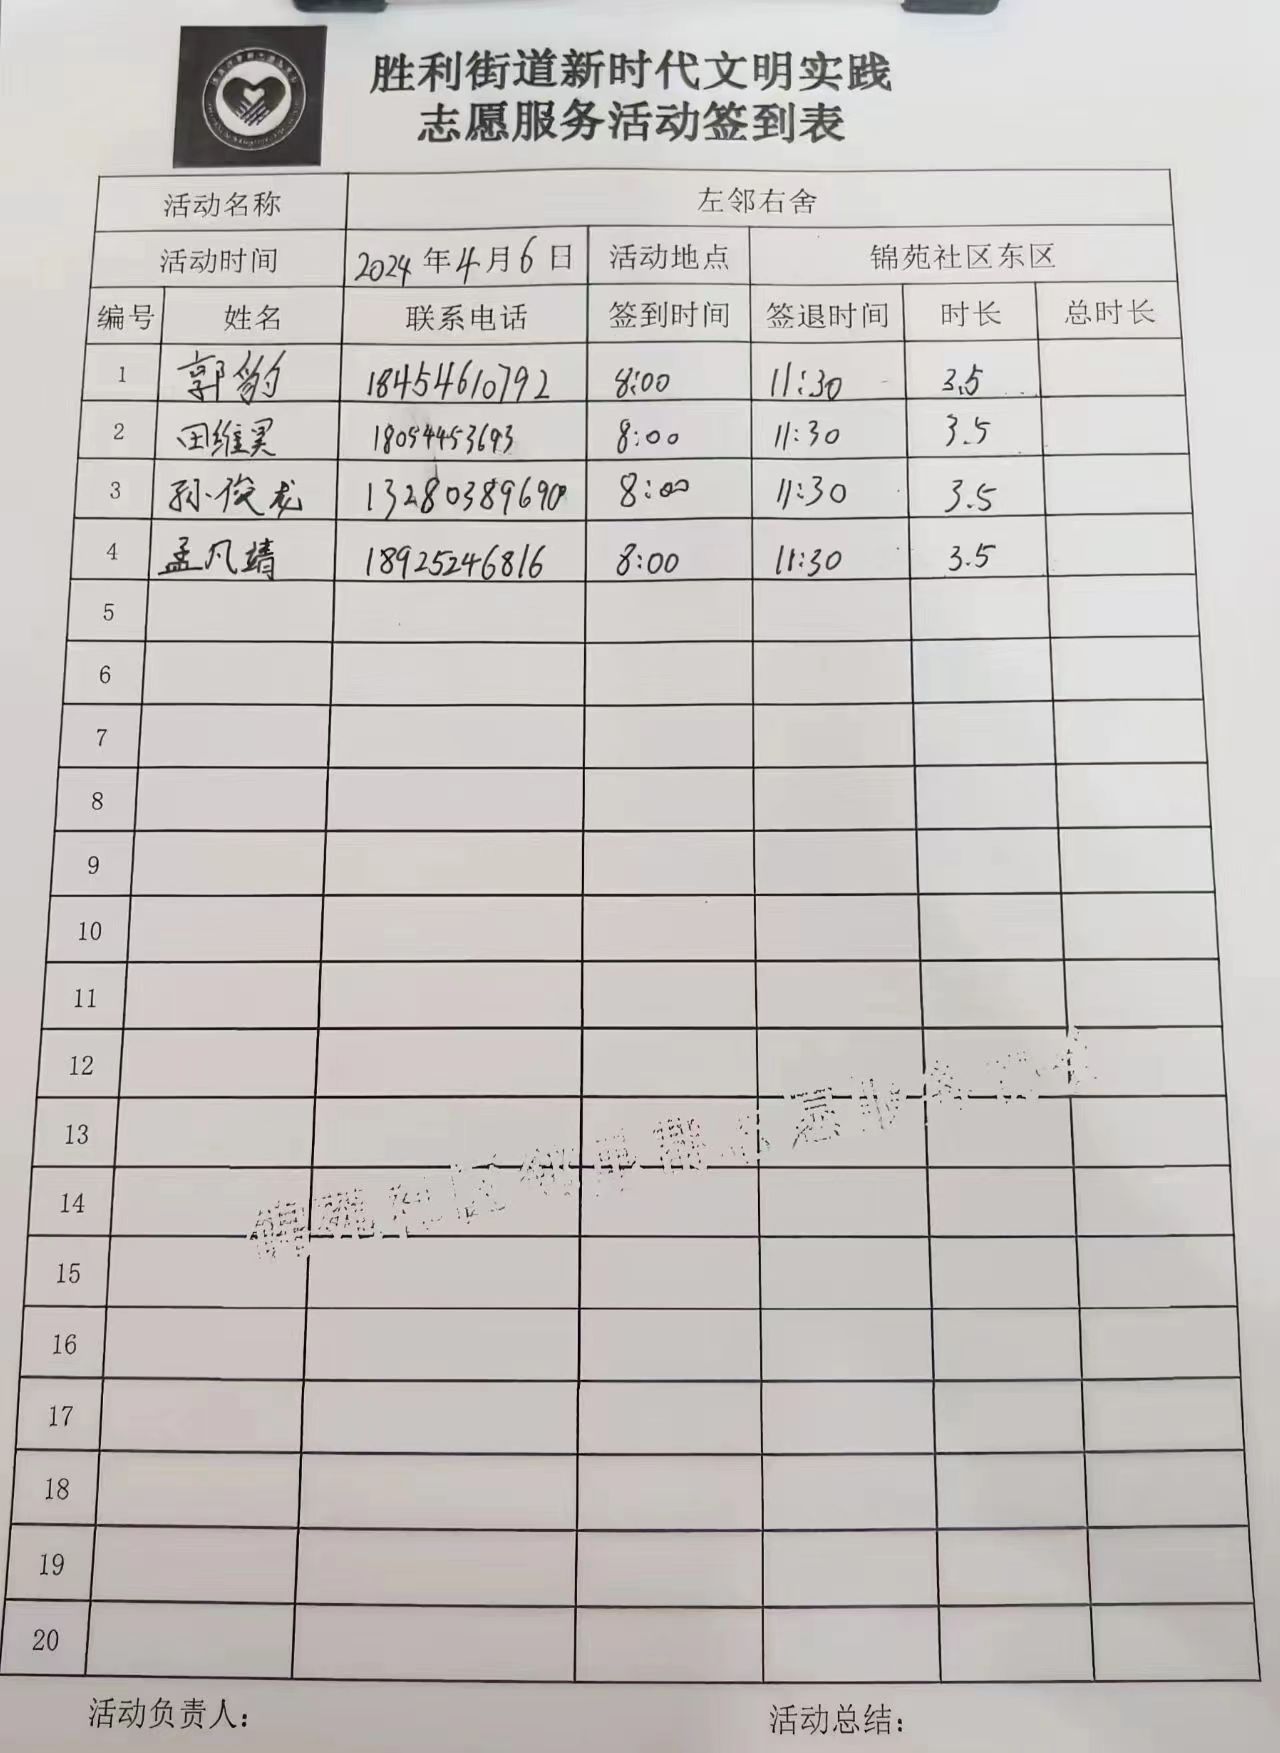 胜利街道新时代文明实践
志愿服务活动签到表
活动名称 左邻右舍
活动时间 2024年4月6日 活动地点 锦苑社区东区
编号 姓名 联系电话 签到时间 签退时间 时长 总时长
1 郭豹 18454610792 8:00 11:30 3.5
2 田维昊 18054453693 8:00 11:30 3.5
3 孙俊龙 13280389690 8:00 11:30 3.5
4 孟凡靖 18925246816 8:00 11:30 3.5
5
6
7
8
9
10
11
12
13
14
15
16
17
18
19
20
活动负责人： 活动总结：